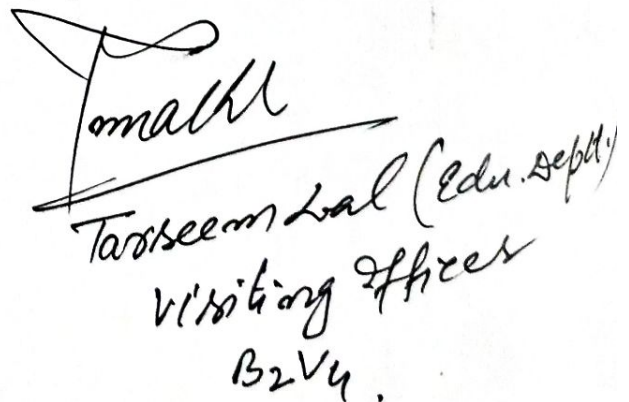 Tarseem Lal (Edu. Deptt.)
Visiting Officer
B2V4.